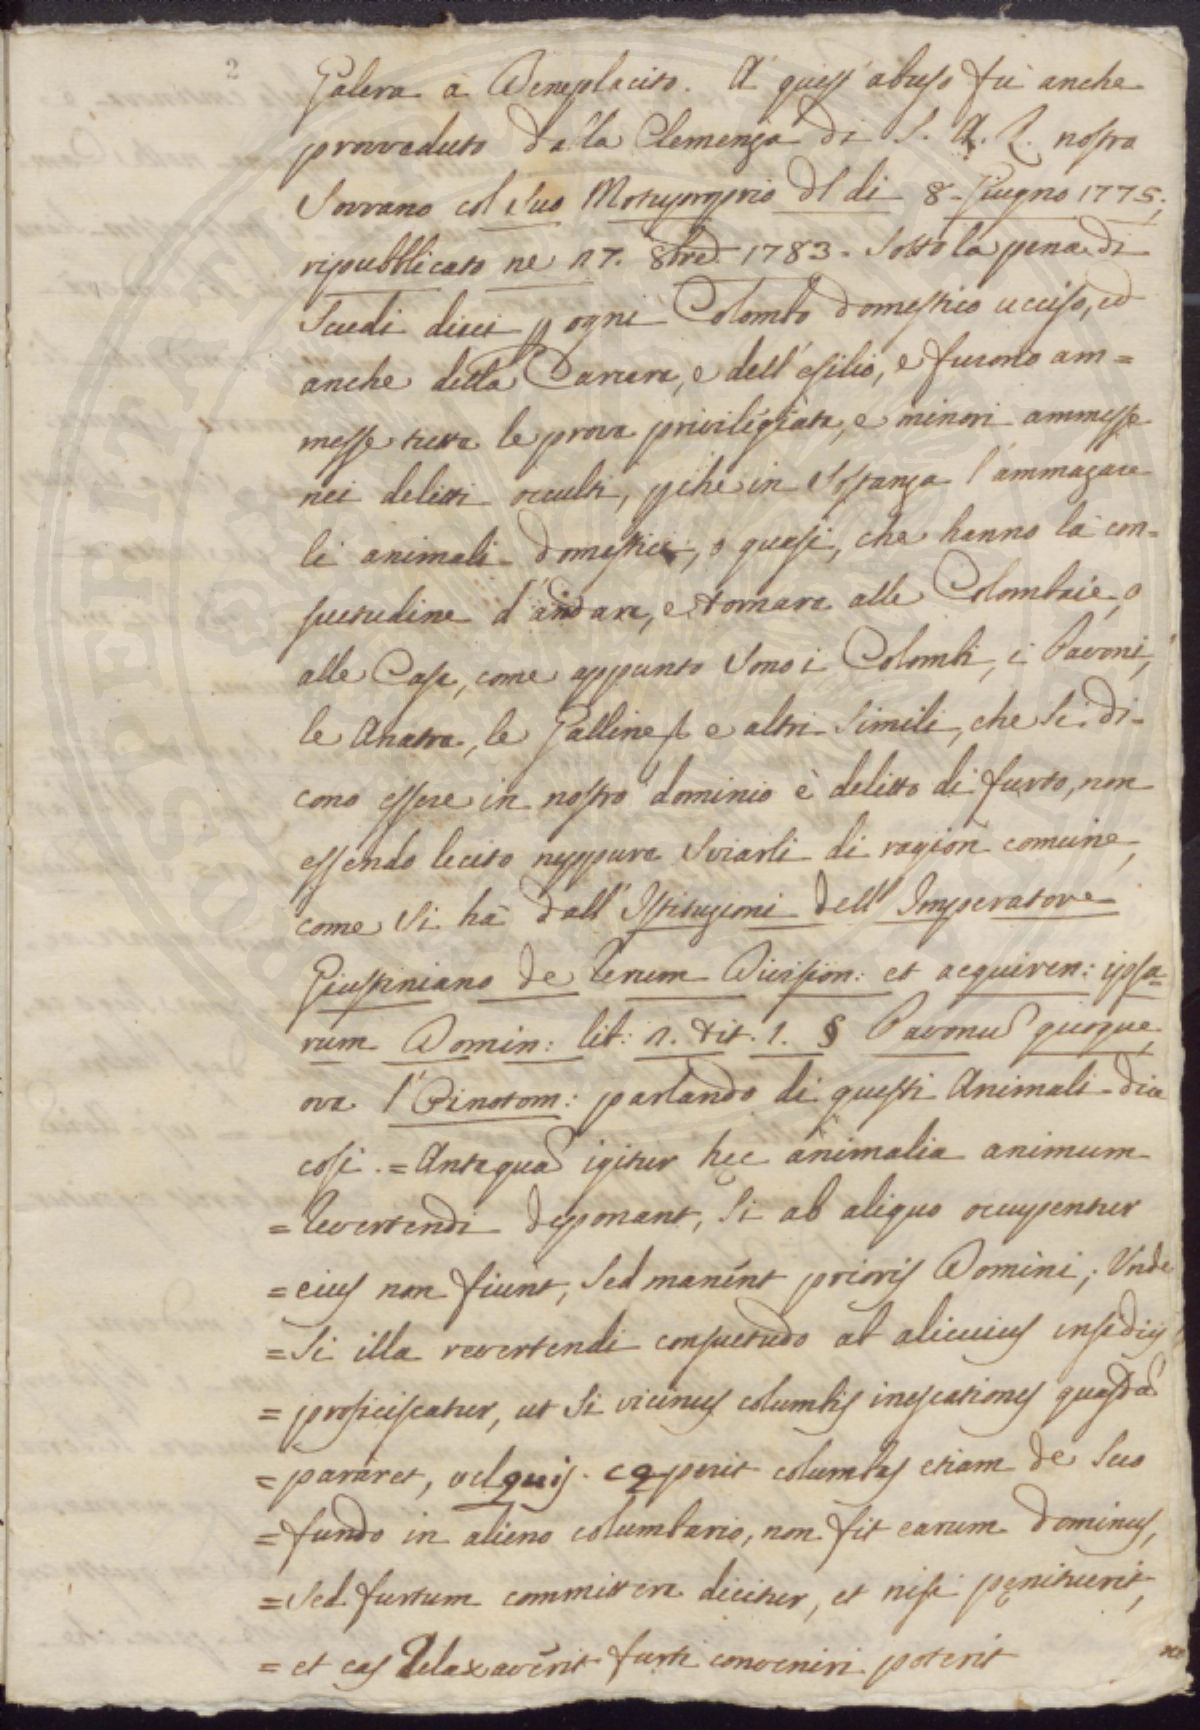 2
Galera à Beneplacito. A quest' abuso fù anche
provveduto dalla Clemenza di S. A. R. nostro
Sovrano col suo Motuproprio dl dì 8. Giugno 1775;
ripubblicato ne 27. 8bre 1783. sotto la pena di
Scudi dieci p ogni Colombo domestico ucciso, ed
anche della Carcere, e dell' esilio, e furono am=
messe tutte le prove privilegiate, e minori ammesse
nei delitti occulti, pche in sostanza l' ammazare
li animali domestici, o quasi, che hanno la con-
suetudine d' andare, e tornare alle Colombaie, o
alle Case, come appunto sono i Colombi, i Pavoni,
le Anatre, le Galline, e altri simili, che si di-
cono essere in nostro dominio è delitto di furto, non
essendo lecito neppure sviarli di ragion comune,
come si ha dall' Istituzioni dell' Imperatore
Giustiniano de Rerum Division: et acquiren: ipsa=
rum Domin: lib: 2. tit. 1. § Pavonu quoque,
ove l' Einotom: parlando di questi Animali dice
così. = Antequa igitur hęc animalia animum
= revertendi deponant, si ab aliquo occupentur
= eius non fiunt, sed manent prioris Domini; Unde
= si illa revertendi consuetudo ab alicuius insidijs
= proficiscatur, ut si vicinus columbis inescationes quasda
= pararet, vel quis cęperit columbas etiam de suo
= fundo in alieno columbario, non fit earum dominus,
= sed furtum committere dicitur, et nisi pęnituerit,
= et eas relaxaverit furti conveniri poterit